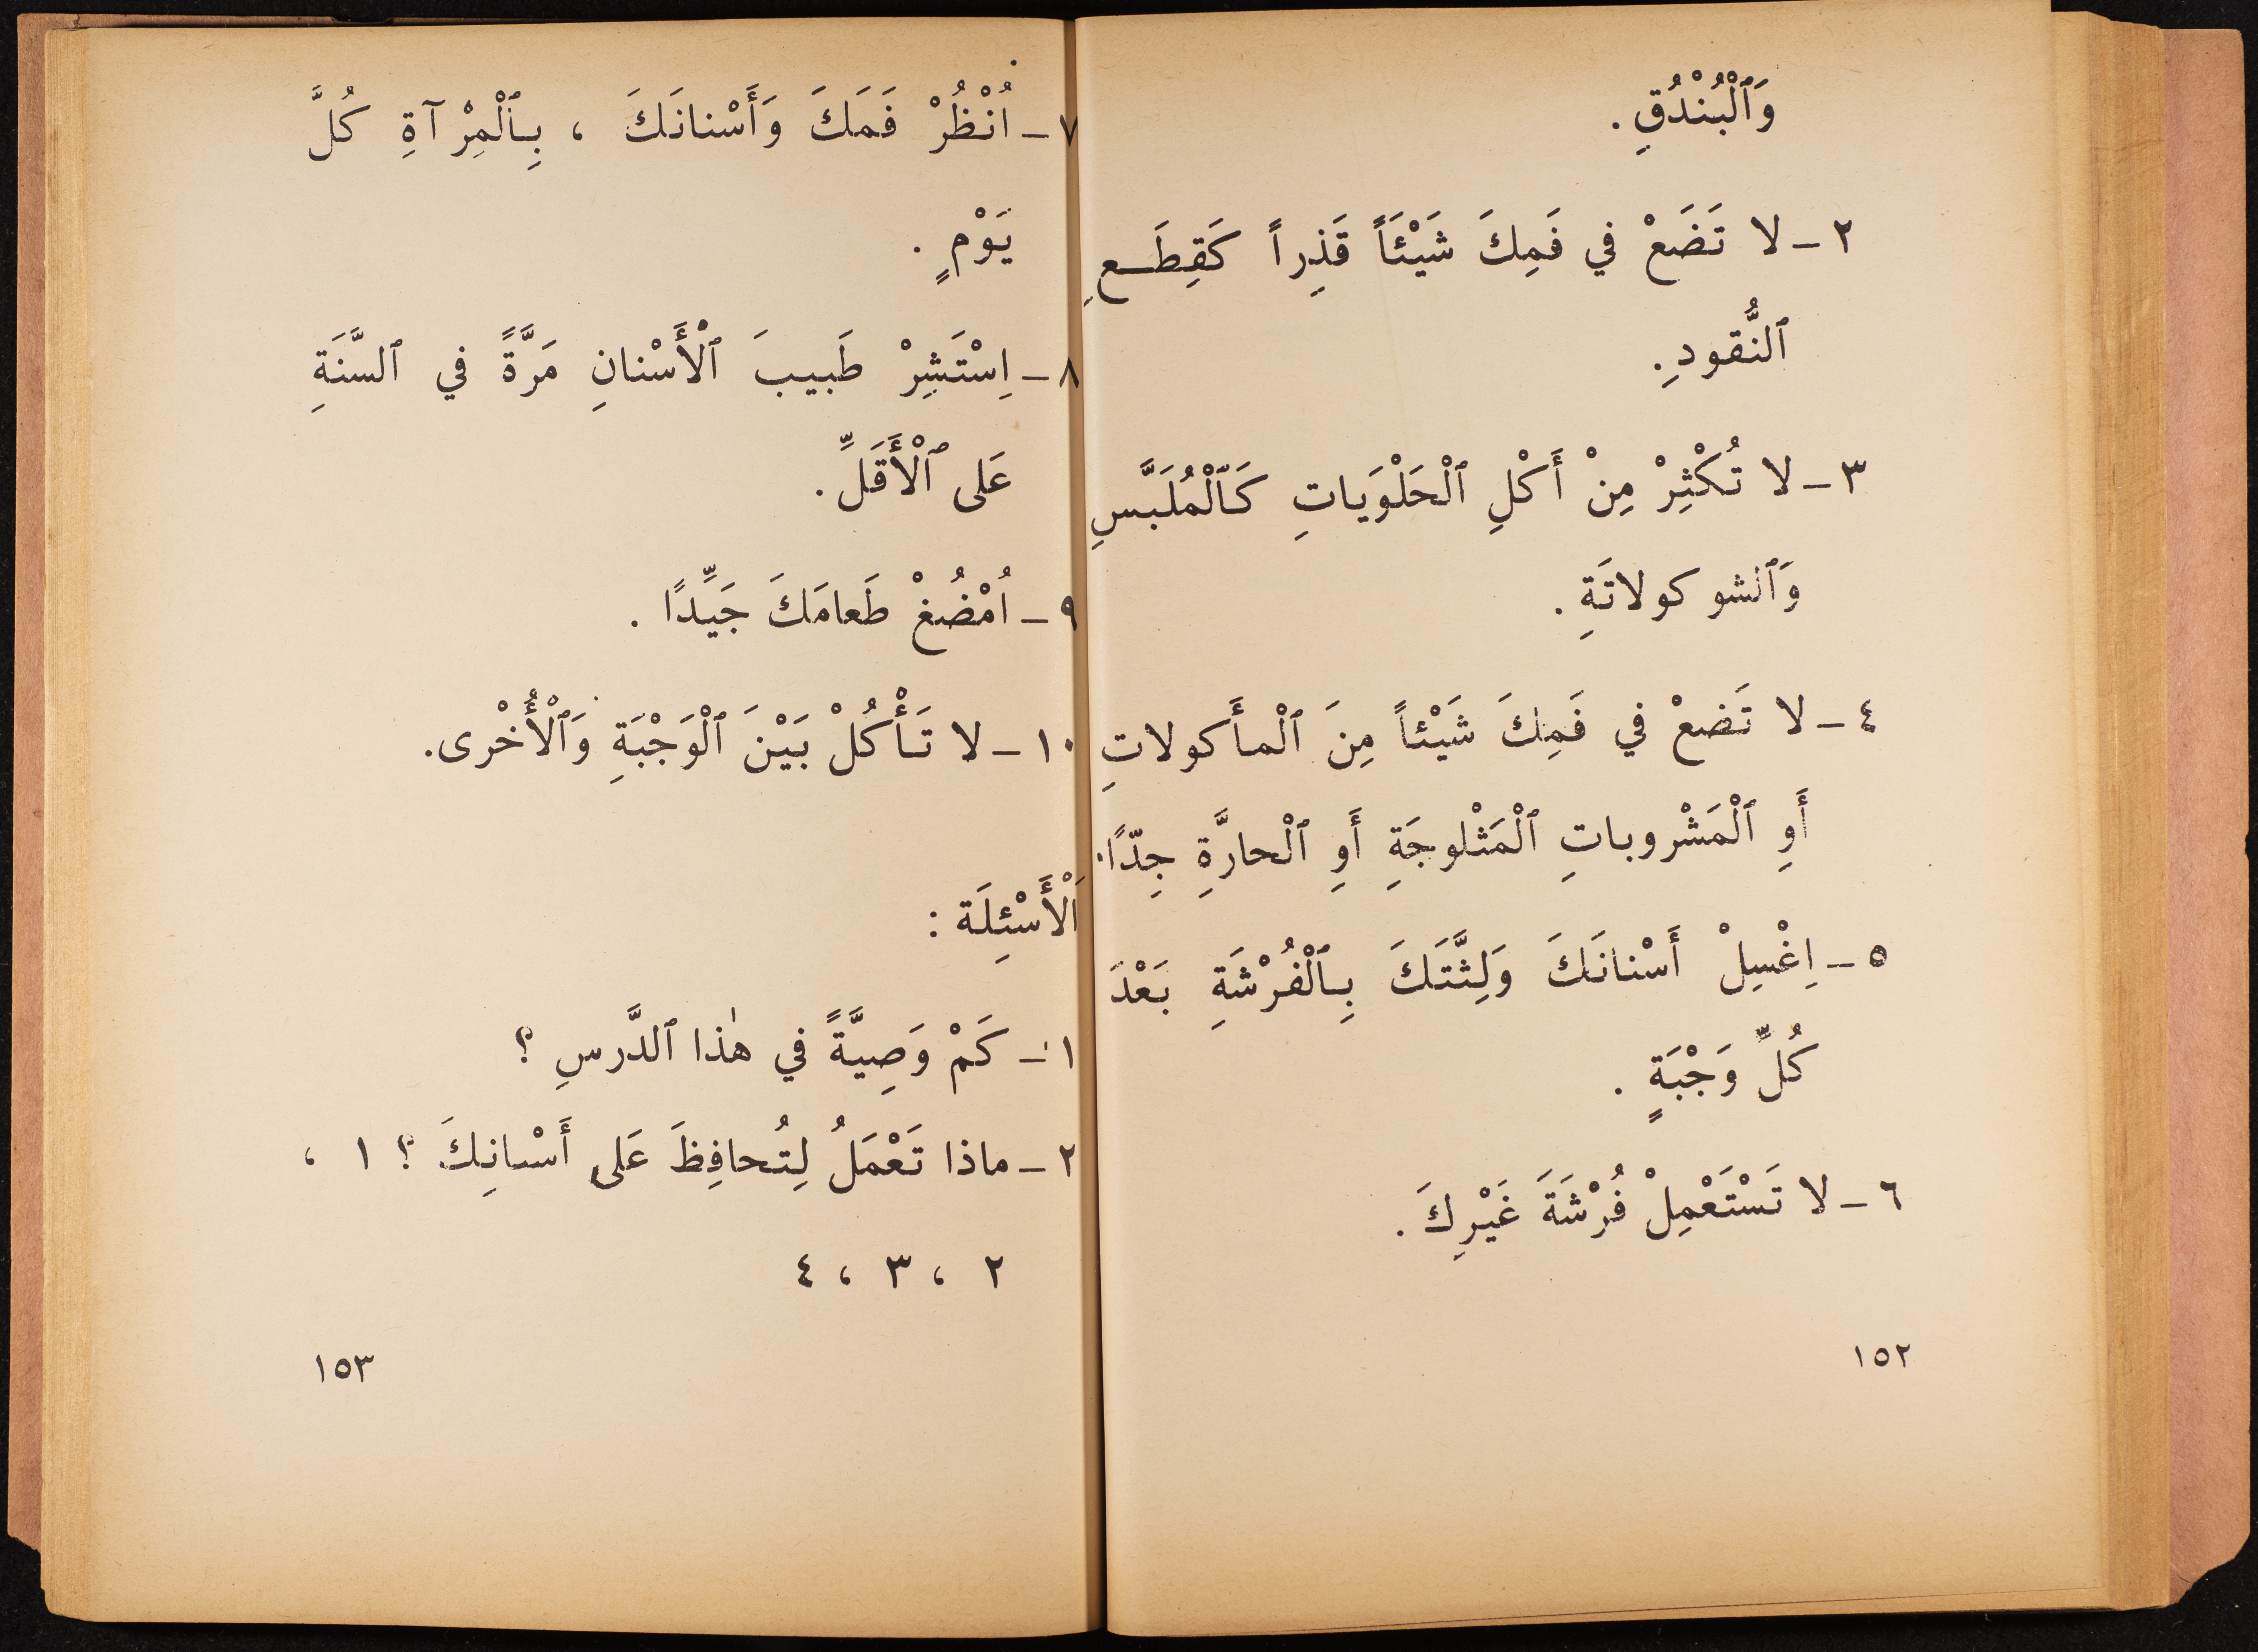 وَٱلْبُنْدُقِ .
٢ – لا تَضَعْ في فَمِكَ شَيْئَاً قَذِراً كَقِطَـعِ
ٱلنُّقودِ .
٣ – لا تُكْثِرْ مِنْ أَكْلِ ٱلْحَلْوَياتِ كَـٱلْمُلَبَّسِ
وَٱلشوكولاتَةِ .
٤ – لا تَضعْ في فَمِكَ شَيْئاً مِنَ ٱلْمأَكولاتِ
أَوِ ٱلْمَشْروباتِ ٱلْمَثْلوجَةِ أَوِ ٱلْحارَّةِ جِدّاً .
٥ – اِغْسِلْ أَسْنانَكَ وَلِثَّتَكَ بِـٱلْفُرْشَةِ بَعْدَ
كُلِّ وَجْبَةٍ .
٦ – لا تَسْتَعْمِلْ فُرْشَةَ غَيْرِكَ .
١٥٢
٧ – اُنْظُرْ فَمَكَ وَأَسْنانَكَ ، بِـٱلْمِرْآةِ كُلَّ
يَوْمٍ .
٨ – اِسْتَشِرْ طَبيبَ ٱلْأَسْنانِ مَرَّةً في ٱلسَّنَةِ
عَلى ٱلْأَقَلِّ .
٩ – اُمْضُغْ طَعامَكَ جَيِّدًا .
١٠ – لا تَـأْكُلْ بَيْنَ ٱلْوَجْبَةِ وَٱلْأُخْرى .
اَلْأَسْئِلَة :
١ – كَمْ وَصِيَّةً في هٰذا ٱلدَّرسِ ؟
٢ – ماذا تَعْمَلُ لِتُحافِظَ عَلى أَسْنانِكَ ؟ ١ ،
٢ ، ٣ ، ٤
١٥٣